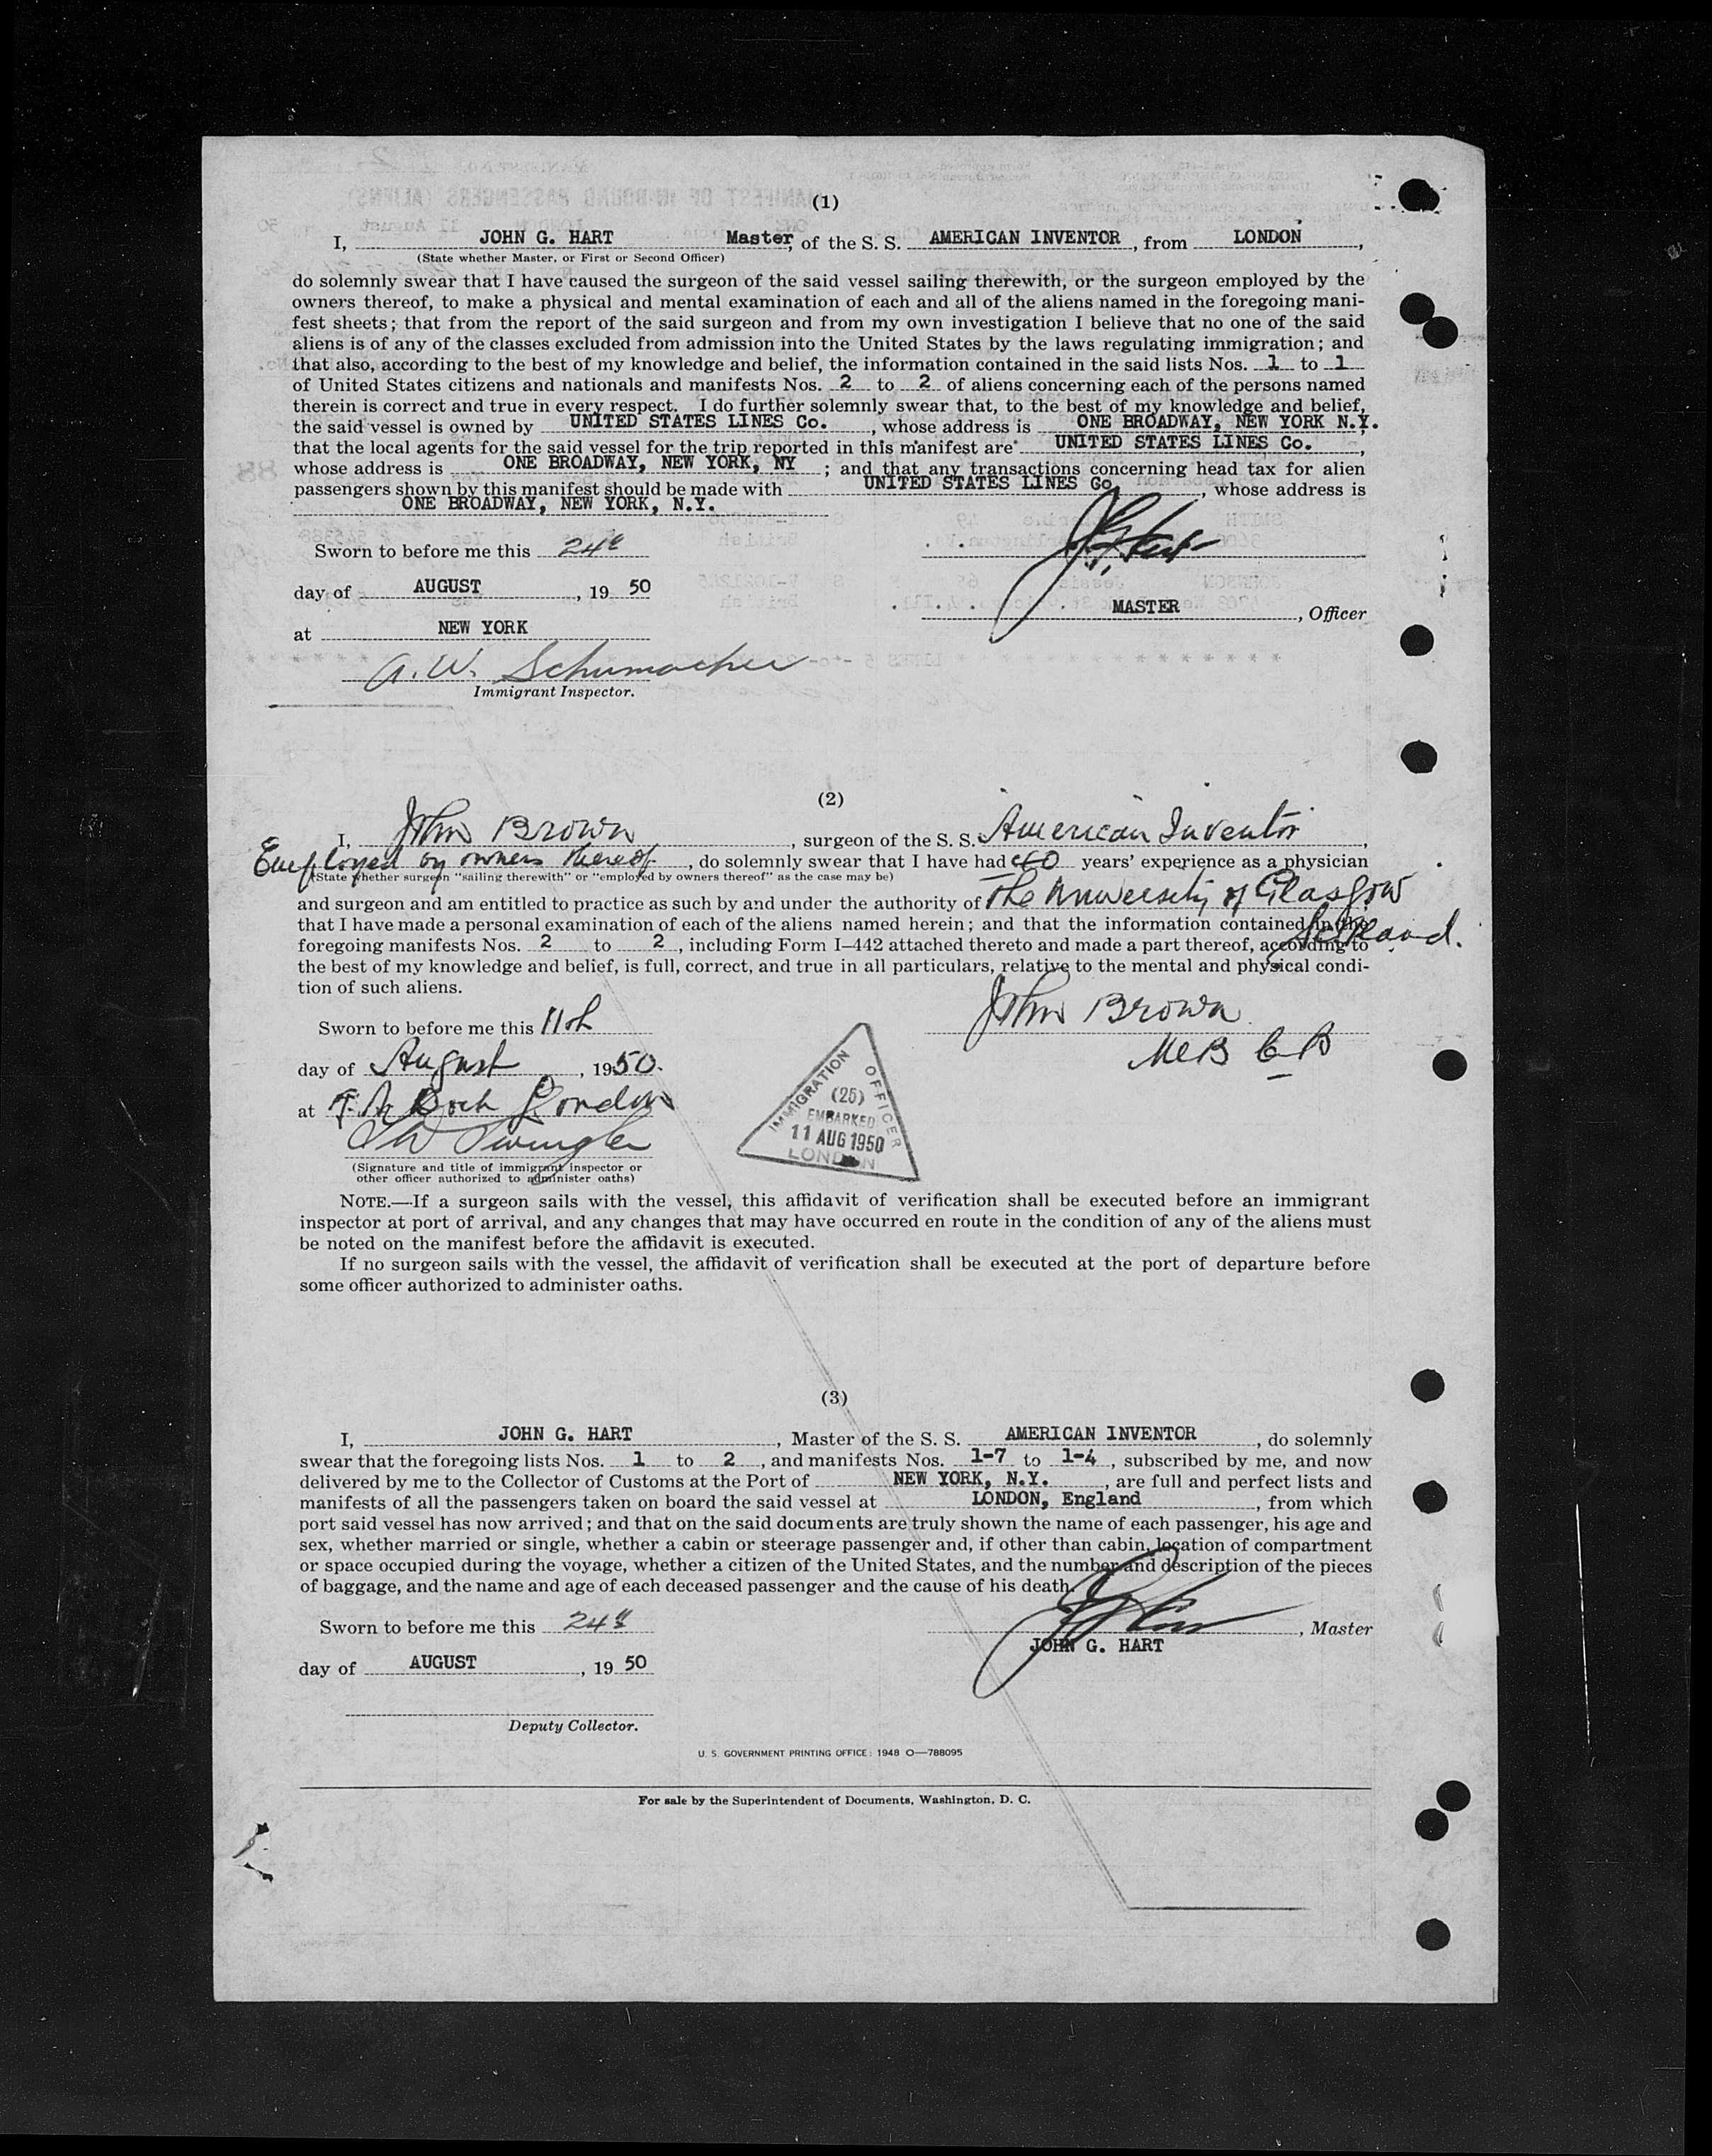 (1)
I, JOHN G. HART Master, of the S. S. AMERICAN INVENTOR, from LONDON,
(State whether Master, or First or Second Officer)
do solemnly swear that I have caused the surgeon of the said vessel sailing therewith, or the surgeon employed by the
owners thereof, to make a physical and mental examination of each and all of the aliens named in the foregoing mani-
fest sheets; that from the report of the said surgeon and from my own investigation I believe that no one of the said
aliens is of any of the classes excluded from admission into the United States by the laws regulating immigration; and
that also, according to the best of my knowledge and belief, the information contained in the said lists Nos. 1 to 1
of United States citizens and nationals and manifests Nos. 2 to 2 of aliens concerning each of the persons named
therein is correct and true in every respect. I do further solemnly swear that, to the best of my knowledge and belief,
the said vessel is owned by UNITED STATES LINES Co., whose address is ONE BROADWAY, NEW YORK N.Y.
that the local agents for the said vessel for the trip reported in this manifest are UNITED STATES LINES Co.,
whose address is ONE BROADWAY, NEW YORK, NY; and that any transactions concerning head tax for alien
passengers shown by this manifest should be made with UNITED STATES LINES Co, whose address is
ONE BROADWAY, NEW YORK, N.Y.
Sworn to before me this 24th
day of AUGUST, 19 50
MASTER, Officer
at NEW YORK
A. W. Schumacher
Immigrant Inspector.
(2)
I, John Brown, surgeon of the S. S. American Inventor,
Employed by owners thereof, do solemnly swear that I have had 40 years' experience as a physician
(State whether surgeon "sailing therewith" or "employed by owners thereof" as the case may be)
and surgeon and am entitled to practice as such by and under the authority of The University of Glasgow
Scotland.
that I have made a personal examination of each of the aliens named herein; and that the information contained in the
foregoing manifests Nos. 2 to 2, including Form I-442 attached thereto and made a part thereof, according to
the best of my knowledge and belief, is full, correct, and true in all particulars, relative to the mental and physical condi-
tion of such aliens.
Sworn to before me this 11th
John Brown
day of August, 1950.
at Dock London
IMMIGRATION OFFICER
(25)
EMBARKED
11 AUG 1950
LONDON
(Signature and title of immigrant inspector or
other officer authorized to administer oaths)
NOTE.—If a surgeon sails with the vessel, this affidavit of verification shall be executed before an immigrant
inspector at port of arrival, and any changes that may have occurred en route in the condition of any of the aliens must
be noted on the manifest before the affidavit is executed.
If no surgeon sails with the vessel, the affidavit of verification shall be executed at the port of departure before
some officer authorized to administer oaths.
(3)
I, JOHN G. HART, Master of the S. S. AMERICAN INVENTOR, do solemnly
swear that the foregoing lists Nos. 1 to 2, and manifests Nos. 1-7 to 1-4, subscribed by me, and now
delivered by me to the Collector of Customs at the Port of NEW YORK, N.Y., are full and perfect lists and
manifests of all the passengers taken on board the said vessel at LONDON, England, from which
port said vessel has now arrived; and that on the said documents are truly shown the name of each passenger, his age and
sex, whether married or single, whether a cabin or steerage passenger and, if other than cabin, location of compartment
or space occupied during the voyage, whether a citizen of the United States, and the number and description of the pieces
of baggage, and the name and age of each deceased passenger and the cause of his death.
Sworn to before me this 24th
, Master
JOHN G. HART
day of AUGUST, 19 50
Deputy Collector.
U. S. GOVERNMENT PRINTING OFFICE: 1948 O—788095
For sale by the Superintendent of Documents, Washington, D. C.